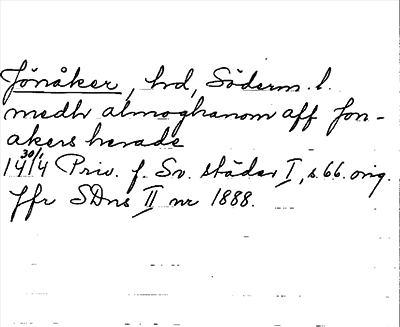 Jönåker, hd, Söderm. l.
medh almoghanom aff Jon-
akers herade
30/1
1414 Priv. f. Sv. städer I, s. 66. orig.
Jfr SDns II nr 1888.